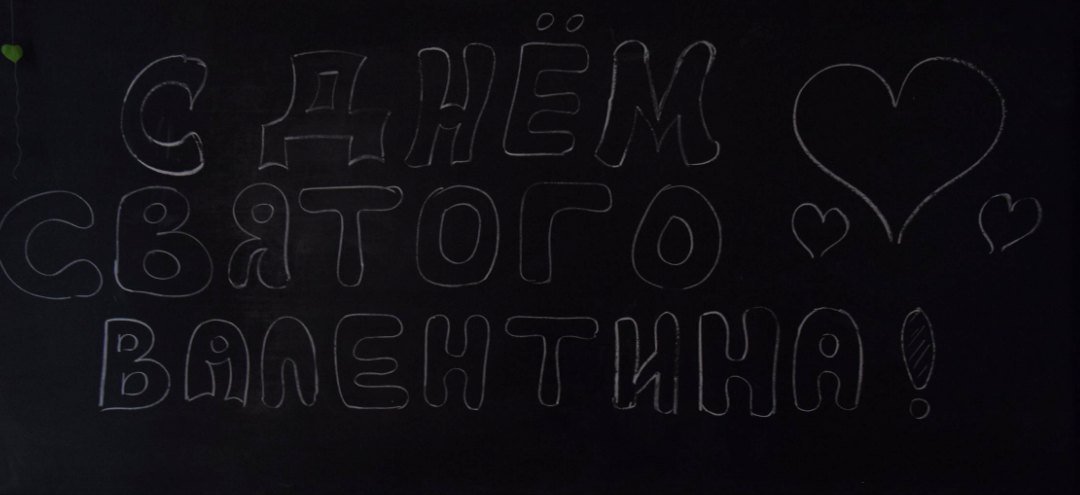 С ДНЁМ
СВЯТОГО
ВАЛЕНТИНА!